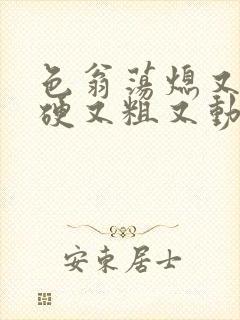 色翁荡熄又
硬又粗又動
安束居士